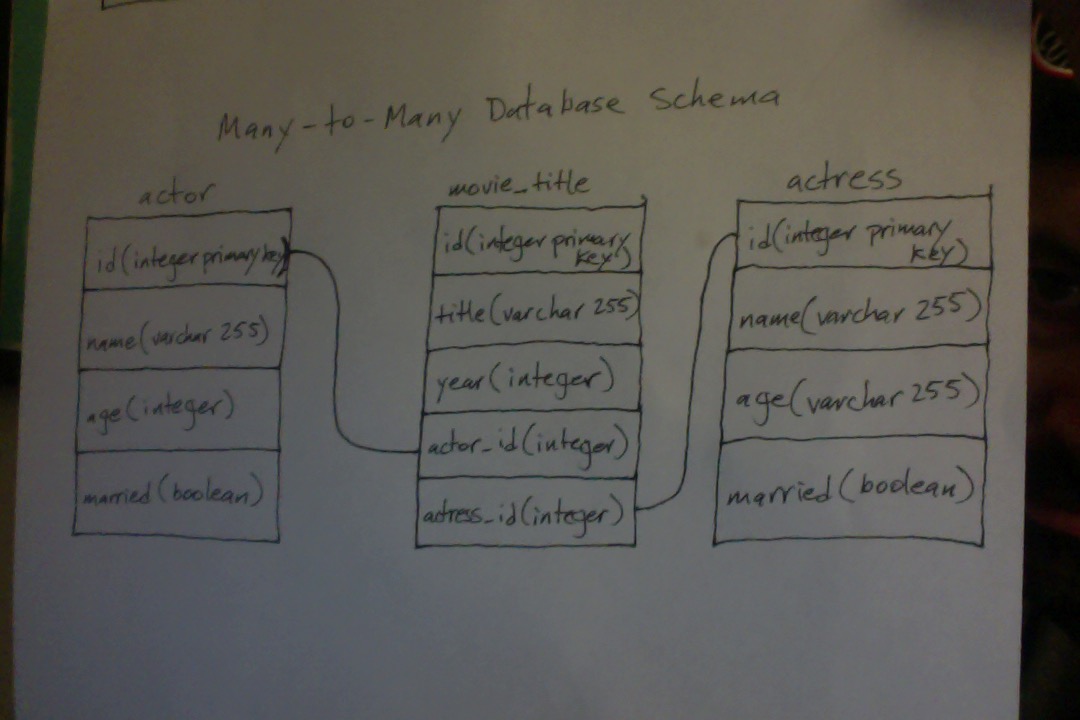 Many-to-Many Database Schema
actor
id(integer primary key)
name(varchar 255)
age(integer)
married(boolean)
movie_title
id(integer primary
key)
title(varchar 255)
year(integer)
actor_id(integer)
actress_id(integer)
actress
id(integer primary
key)
name(varchar 255)
age(varchar 255)
married(boolean)